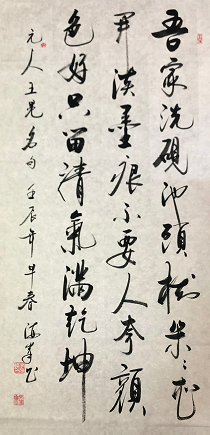 吾家洗硯池頭樹朵〻花
開淡墨痕不要人夸顏
色好只留清氣滿乾坤
元人王冕名句 壬辰年早春